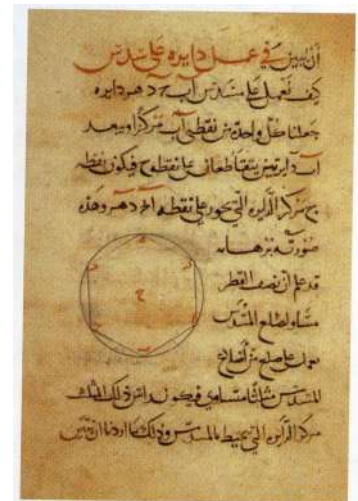 ان نبين في عمل دايره على مسدس
كيف نعمل على مسدس ا ب ج د ه ر دايره
جعلنا كل واحدة من نقطتي ا ب مركزا وببعد
ا ب دايرتين يتقاطعان على نقطة ح فيكون نقطه
ح مركز الدايره التي تجوز على نقطه ا ب ج د ه ر وهذه
صورته برهانه
قد علم ان نصف القطر
مساو لضلع المسدس
نعمل على ضلع من اضلاع
المسدس مثلثا متساوي فيكون راس ذلك المثلث
مركز الدايره التي تحيط بالمسدس وذلك ما اردنا ان نبين
ح